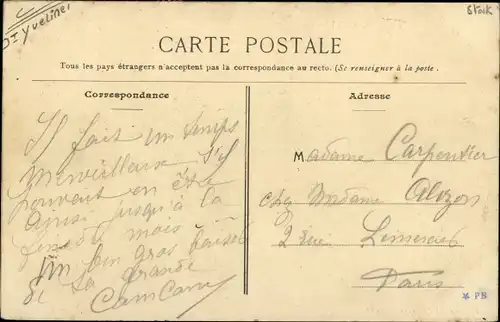 D+ Yvelines
Stock
CARTE POSTALE
Tous les pays étrangers n'acceptent pas la correspondance au recto. (Se renseigner à la poste.
Correspondance
Adresse
Il fait un temps
merveilleux S'il
pouvait en être
ainsi jusqu'à la
fin du mois
Un bon gros baiser
de la grande
Cam Cam
Madame Carpentier
chez Madame
2 rue
Paris
PB